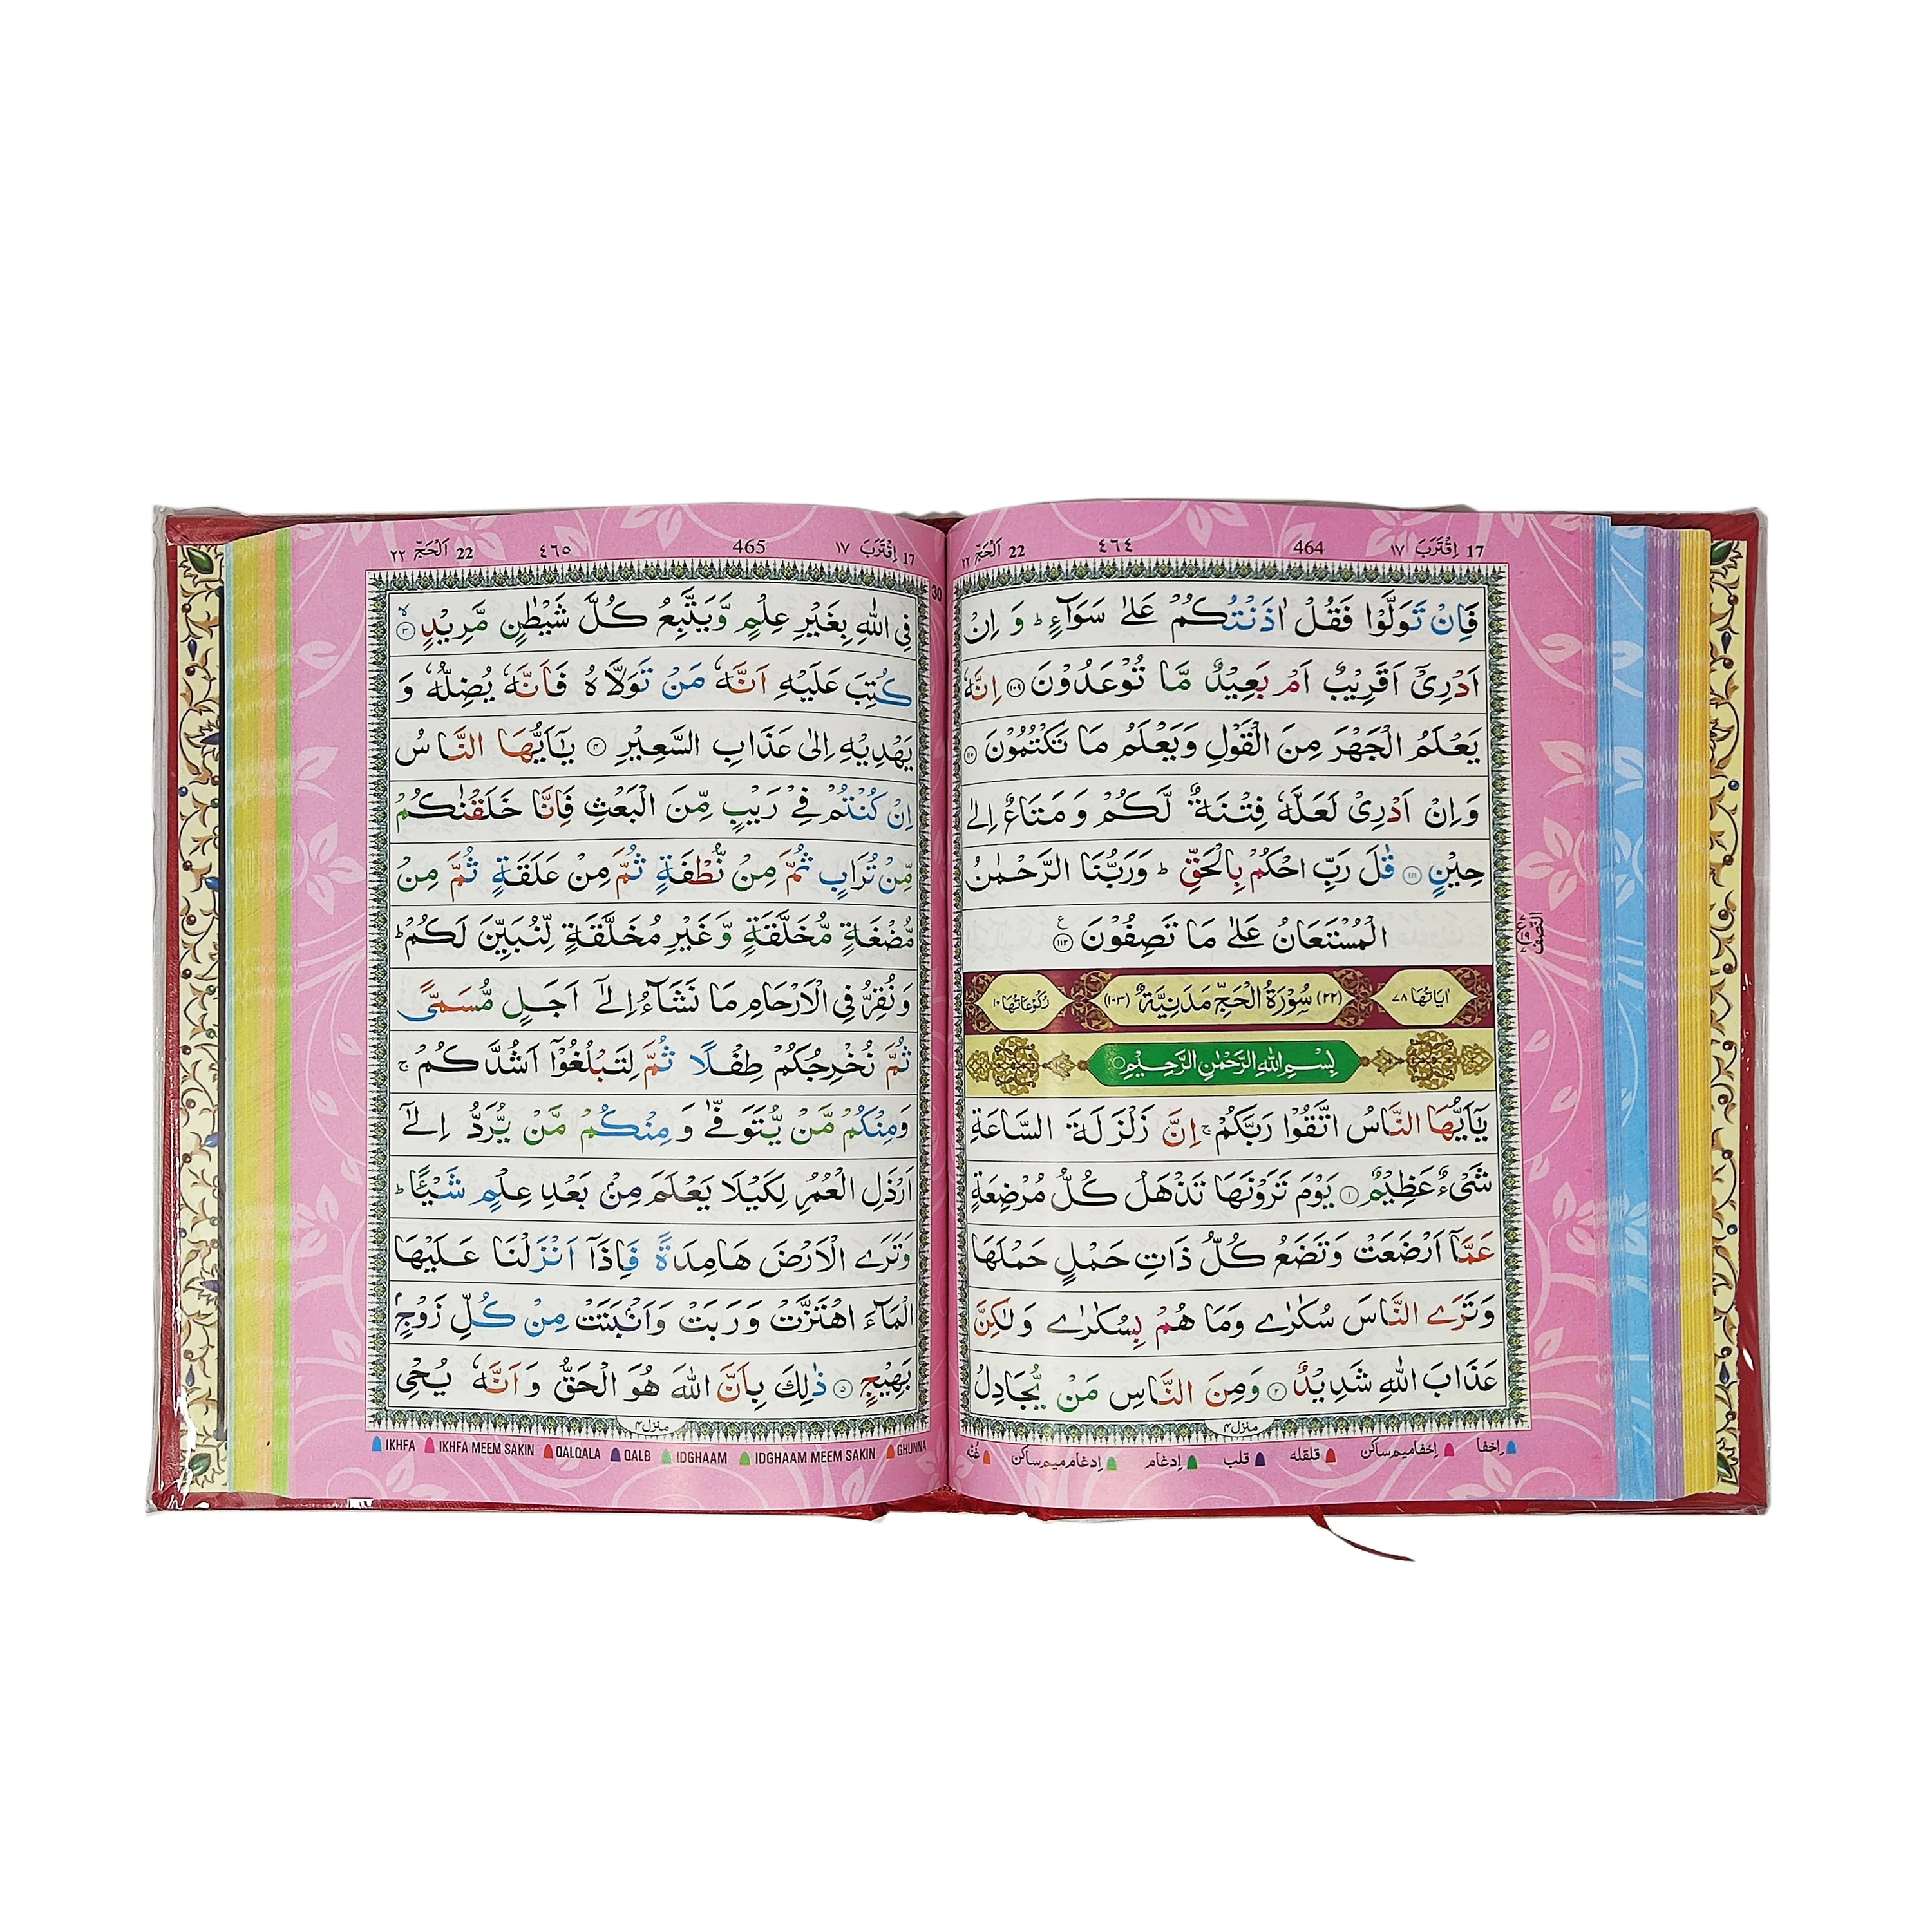 17 اِقْتَرَبَ ١٧ 464 ٤٦٤ 22 اَلْحَجّ ٢٢
فَاِنْ تَوَلَّوْا فَقُلْ اٰذَنْتُكُمْ عَلٰى سَوَآءٍ ؕ وَ اِنْ
اَدْرِىْٓ اَقَرِيْبٌ اَمْ بَعِيْدٌ مَّا تُوْعَدُوْنَ ۝١٠٩ اِنَّهٗ
يَعْلَمُ الْجَهْرَ مِنَ الْقَوْلِ وَيَعْلَمُ مَا تَكْتُمُوْنَ ۝١١٠
وَاِنْ اَدْرِىْ لَعَلَّهٗ فِتْنَةٌ لَّكُمْ وَ مَتَاعٌ اِلٰى
حِيْنٍ ۝١١١ قٰلَ رَبِّ احْكُمْ بِالْحَقِّ ؕ وَرَبُّنَا الرَّحْمٰنُ
الْمُسْتَعَانُ عَلٰى مَا تَصِفُوْنَ ۝١١٢ ع
النصف
اٰيَاتُهَا ٧٨ (٢٢) سُوْرَةُ الْحَجِّ مَدَنِيَّةٌ (١٠٣) رُكُوْعَاتُهَا ١٠
بِسْمِ اللّٰهِ الرَّحْمٰنِ الرَّحِيْمِ
يٰٓاَيُّهَا النَّاسُ اتَّقُوْا رَبَّكُمْ ۚ اِنَّ زَلْزَلَةَ السَّاعَةِ
شَىْءٌ عَظِيْمٌ ۝١ يَوْمَ تَرَوْنَهَا تَذْهَلُ كُلُّ مُرْضِعَةٍ
عَمَّآ اَرْضَعَتْ وَتَضَعُ كُلُّ ذَاتِ حَمْلٍ حَمْلَهَا
وَتَرَى النَّاسَ سُكٰرٰى وَمَا هُمْ بِسُكٰرٰى وَلٰكِنَّ
عَذَابَ اللّٰهِ شَدِيْدٌ ۝٢ وَمِنَ النَّاسِ مَنْ يُّجَادِلُ
منزل ٤
اِخفا اِخفا میم ساکن قلقله قلب اِدغام اِدغام میم ساکن غُنّه
17 اِقْتَرَبَ ١٧ 465 ٤٦٥ 22 اَلْحَجّ ٢٢
30
فِى اللّٰهِ بِغَيْرِ عِلْمٍ وَّيَتَّبِعُ كُلَّ شَيْطٰنٍ مَّرِيْدٍ ۝٣ۙ
كُتِبَ عَلَيْهِ اَنَّهٗ مَنْ تَوَلَّاهُ فَاَنَّهٗ يُضِلُّهٗ وَ
يَهْدِيْهِ اِلٰى عَذَابِ السَّعِيْرِ ۝٤ يٰٓاَيُّهَا النَّاسُ
اِنْ كُنْتُمْ فِىْ رَيْبٍ مِّنَ الْبَعْثِ فَاِنَّا خَلَقْنٰكُمْ
مِّنْ تُرَابٍ ثُمَّ مِنْ نُّطْفَةٍ ثُمَّ مِنْ عَلَقَةٍ ثُمَّ مِنْ
مُّضْغَةٍ مُّخَلَّقَةٍ وَّغَيْرِ مُخَلَّقَةٍ لِّنُبَيِّنَ لَكُمْ ؕ
وَنُقِرُّ فِى الْاَرْحَامِ مَا نَشَآءُ اِلٰٓى اَجَلٍ مُّسَمًّى
ثُمَّ نُخْرِجُكُمْ طِفْلًا ثُمَّ لِتَبْلُغُوْٓا اَشُدَّكُمْ ۚ
وَمِنْكُمْ مَّنْ يُّتَوَفّٰى وَمِنْكُمْ مَّنْ يُّرَدُّ اِلٰٓى
اَرْذَلِ الْعُمُرِ لِكَيْلَا يَعْلَمَ مِنْۢ بَعْدِ عِلْمٍ شَيْـًٔا ؕ
وَتَرَى الْاَرْضَ هَامِدَةً فَاِذَآ اَنْزَلْنَا عَلَيْهَا
الْمَآءَ اهْتَزَّتْ وَرَبَتْ وَاَنْۢبَتَتْ مِنْ كُلِّ زَوْجٍۭ
بَهِيْجٍ ۝٥ ذٰلِكَ بِاَنَّ اللّٰهَ هُوَ الْحَقُّ وَاَنَّهٗ يُحْىِ
منزل ٤
IKHFA IKHFA MEEM SAKIN QALQALA QALB IDGHAAM IDGHAAM MEEM SAKIN GHUNNA